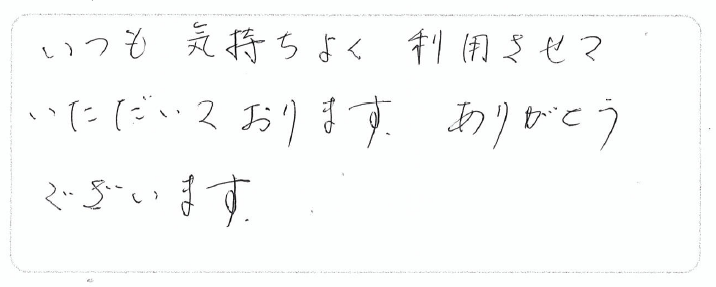 いつも 気持ちよく 利用させて
いただいております. ありがとう
ございます.